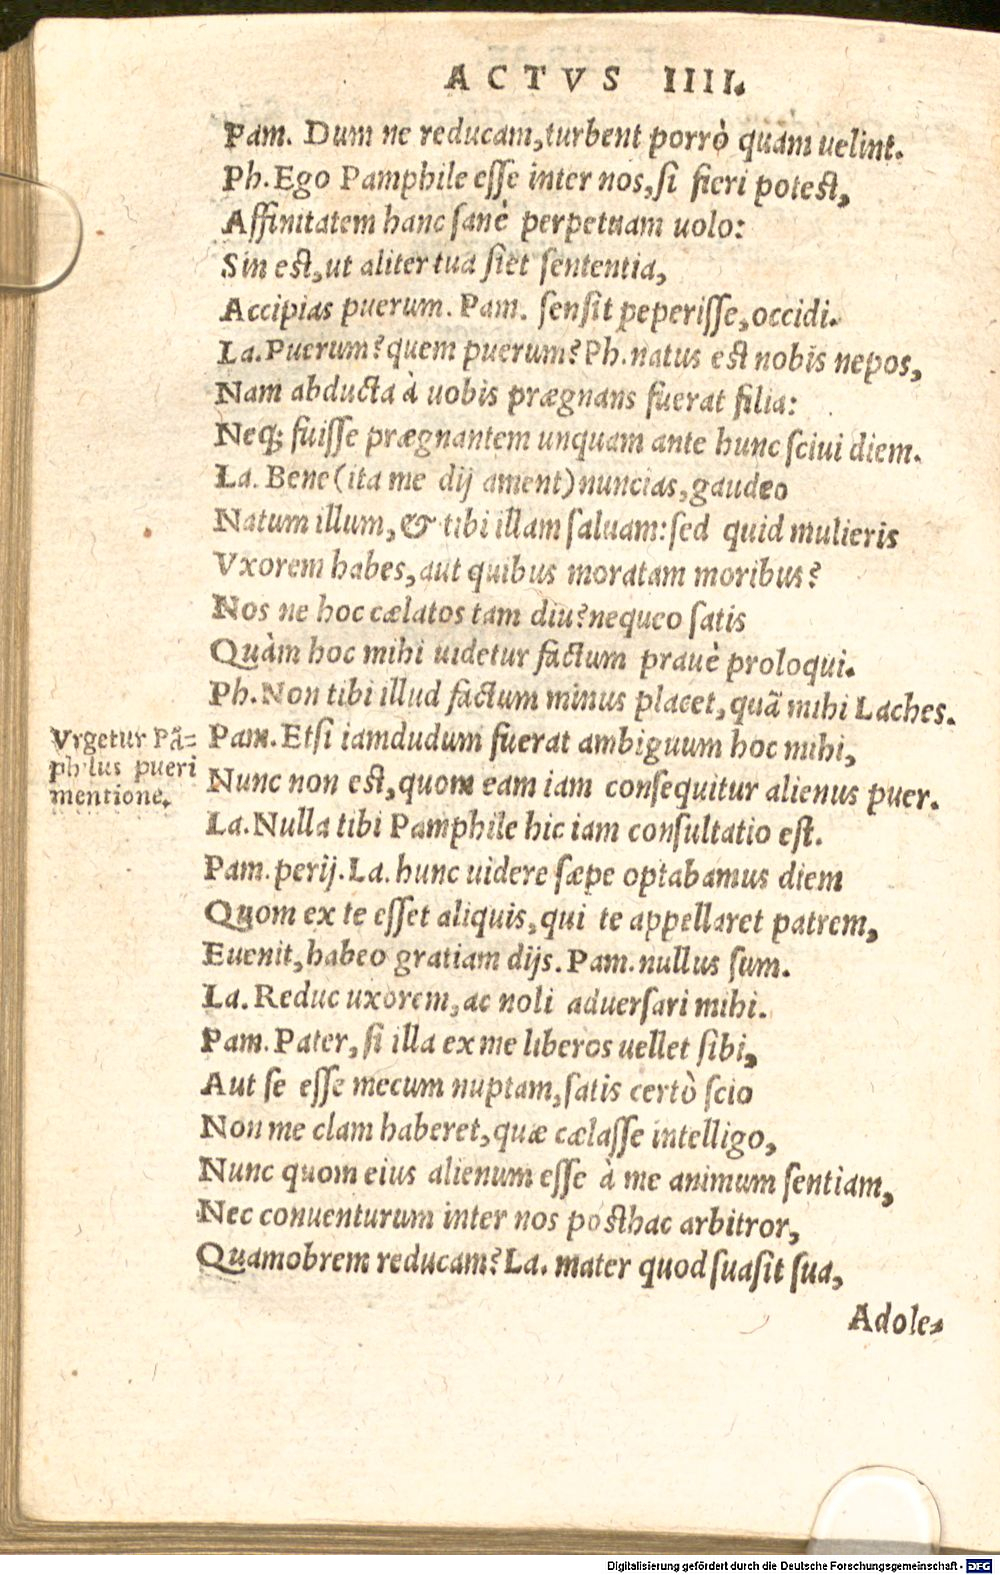 ACTVS IIII.
Pam. Dum ne reducam, turbent porrò quam uelint.
Ph. Ego Pamphile esse inter nos, si fieri potest,
Affinitatem hanc sanè perpetuam uolo:
Sin est, ut aliter tua siet sententia,
Accipias puerum. Pam. sensit peperisse, occidi.
La. Puerum? quem puerum? Ph. natus est nobis nepos,
Nam abducta à uobis prægnans fuerat filia:
Neq; fuisse prægnantem unquam ante hunc sciui diem.
La. Bene (ita me dij ament) nuncias, gaudeo
Natum illum, & tibi illam saluam: sed quid mulieris
Vxorem habes, aut quibus moratam moribus?
Nos ne hoc cælatos tam diu? nequeo satis
Quàm hoc mihi uidetur factum prauè proloqui.
Ph. Non tibi illud factum minus placet, quã mihi Laches.
Vrgetur Pã=
philus pueri
mentione.
Pam. Etsi iamdudum fuerat ambiguum hoc mihi,
Nunc non est, quom eam iam consequitur alienus puer.
La. Nulla tibi Pamphile hic iam consultatio est.
Pam. perij. La. hunc uidere sæpe optabamus diem
Quom ex te esset aliquis, qui te appellaret patrem,
Euenit, habeo gratiam dijs. Pam. nullus sum.
La. Reduc uxorem, ac noli aduersari mihi.
Pam. Pater, si illa ex me liberos uellet sibi,
Aut se esse mecum nuptam, satis certò scio
Non me clam haberet, quæ cælasse intelligo,
Nunc quom eius alienum esse à me animum sentiam,
Nec conuenturum inter nos posthac arbitror,
Quamobrem reducam? La. mater quod suasit sua,
Adole=
Digitalisierung gefördert durch die Deutsche Forschungsgemeinschaft - DFG